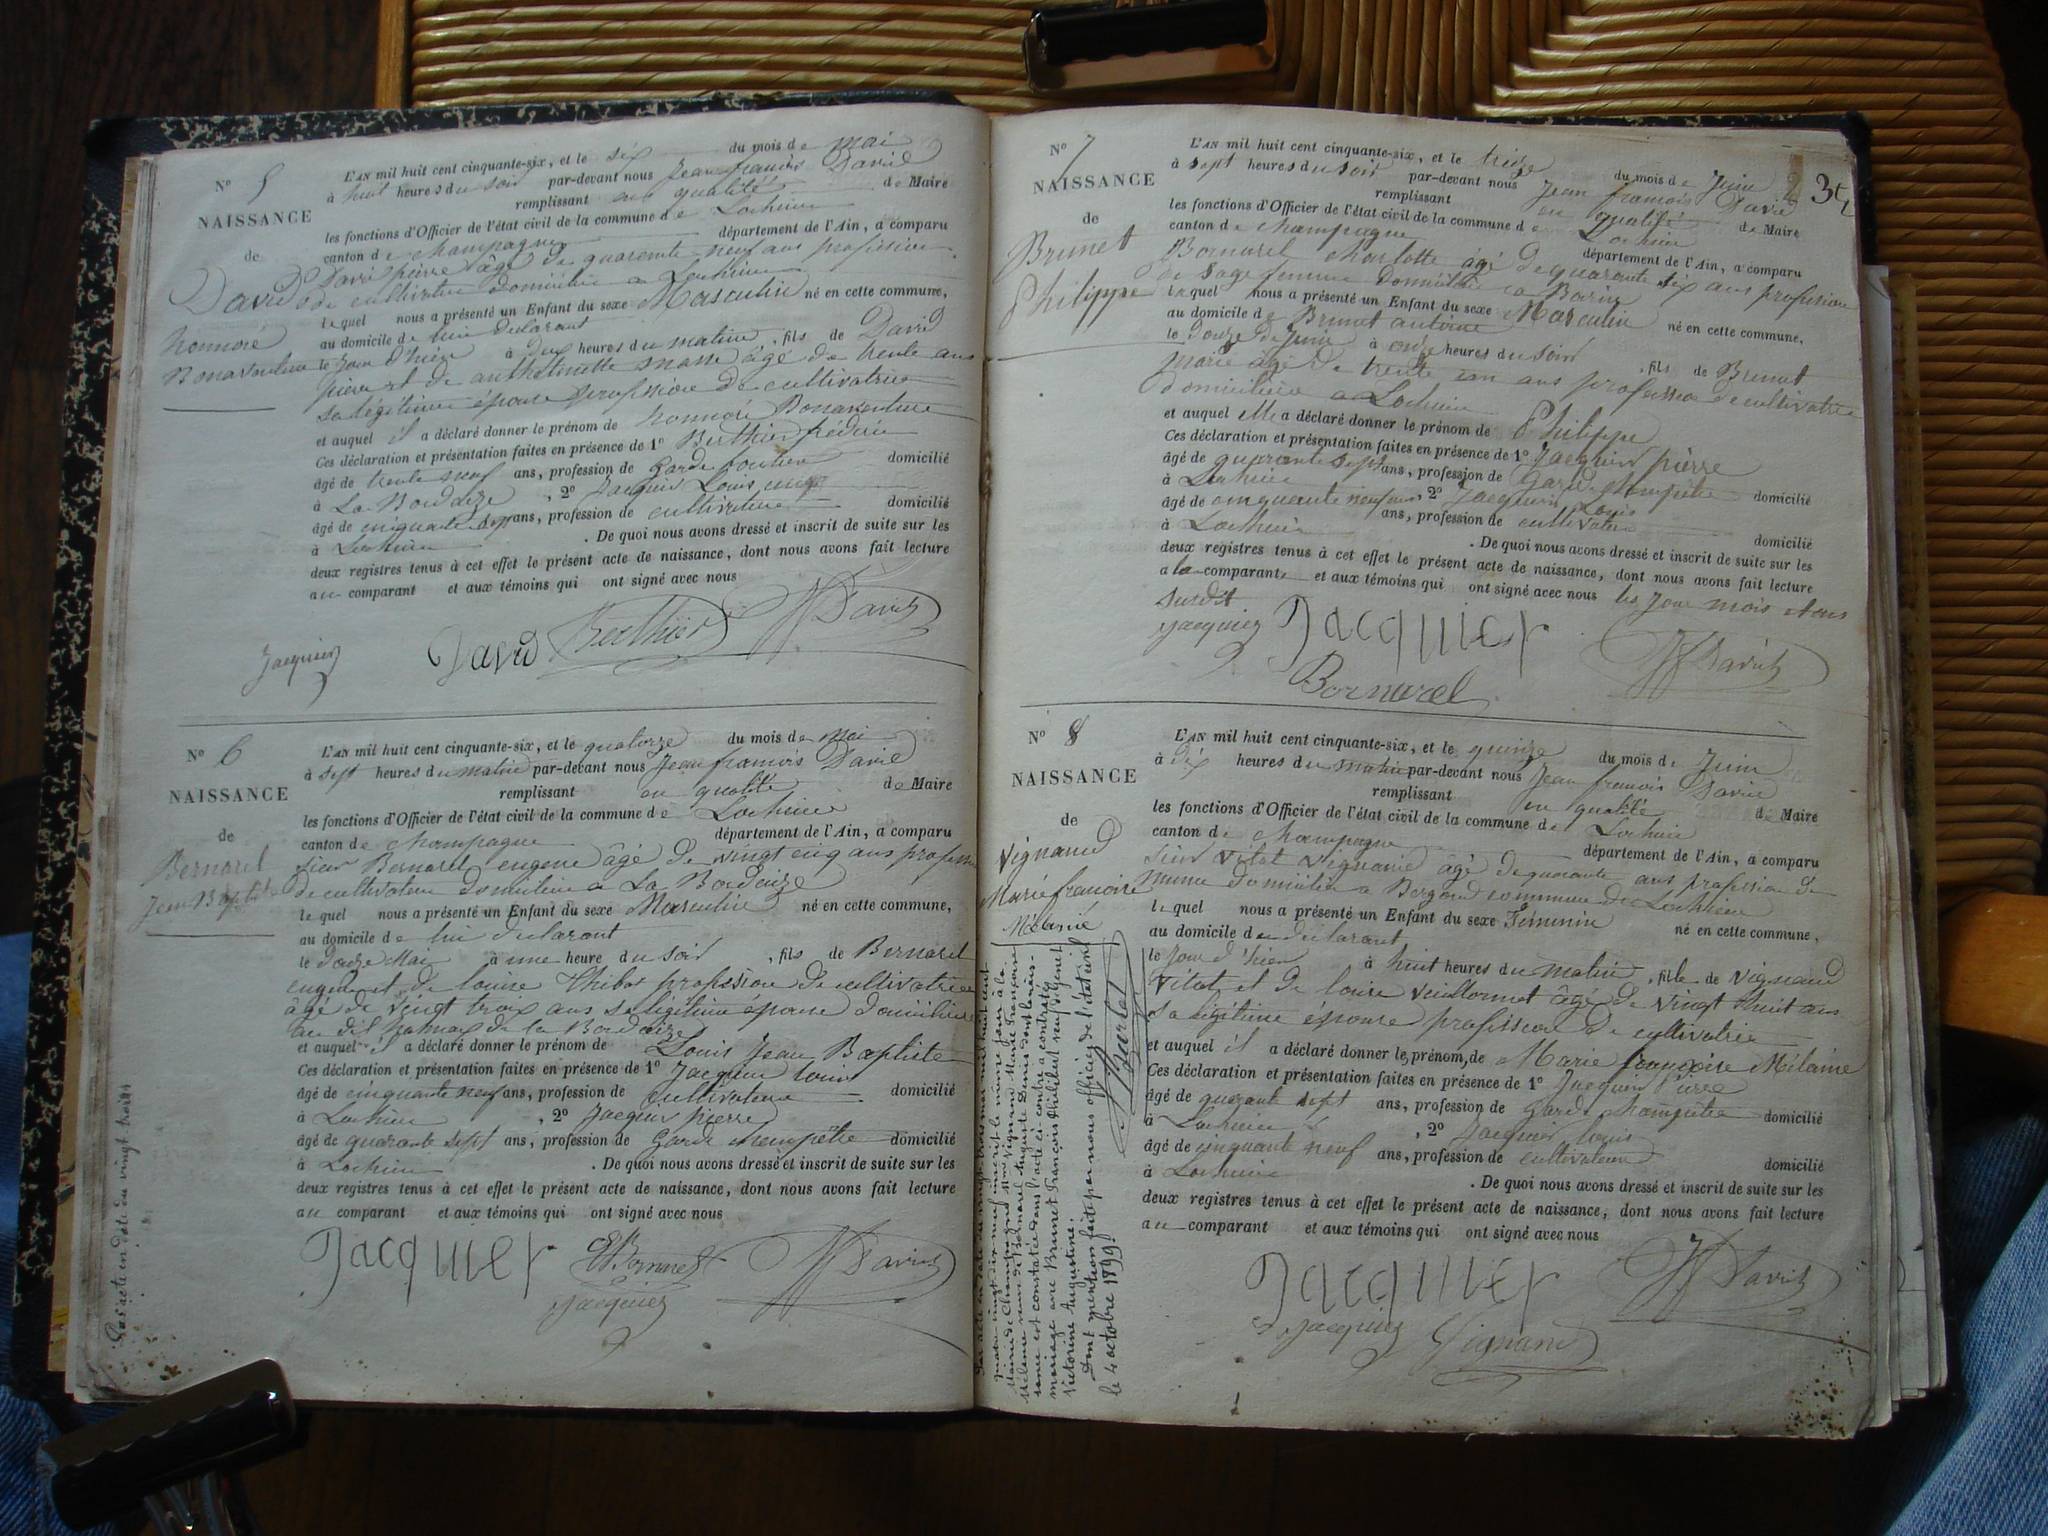 N° 5
NAISSANCE
de
David
honnoré
Bonaventure
L'AN mil huit cent cinquante-six, et le six du mois de mai
à huit heures du soir par-devant nous Jean françois David
remplissant en qualité de Maire
les fonctions d'Officier de l'état civil de la commune de Lochieu
canton de champagne département de l'Ain, a comparu
David pierre âgé de quarente neuf ans profission
de cultivateur domicilié a Lochieu
lequel nous a présenté un Enfant du sexe Masculin né en cette commune,
au domicile de lui déclarant
le Jour d'hier à deux heures du matin, fils de David
pierre et de anthelmette masse âgé de trente ans
sa légitime épouse profission de cultivatrice
et auquel il a déclaré donner le prénom de honnoré Bonaventure
Ces déclaration et présentation faites en présence de 1° Berthier frédéric
âgé de trente neuf ans, profession de Garde foutier domicilié
à La Bordaize, 2° Jacquin Louis
âgé de cinquante ans, profession de cultivateur domicilié
à Lochieu. De quoi nous avons dressé et inscrit de suite sur les
deux registres tenus à cet effet le présent acte de naissance, dont nous avons fait lecture
au comparant et aux témoins qui ont signé avec nous
Jacquier David Berthier JfDavid
N° 6
NAISSANCE
de
Bernarel
Jean Baptiste
L'AN mil huit cent cinquante-six, et le quatorze du mois de mai
à sept heures du matin par-devant nous Jean francois David
remplissant en qualité de Maire
les fonctions d'Officier de l'état civil de la commune de Lochieu
canton de champagne département de l'Ain, a comparu
sieur Bernarel eugene âgé de vingt cinq ans profession
de cultivateur domicilié a La Bordaize
le quel nous a présenté un Enfant du sexe Masculin né en cette commune,
au domicile de lui déclarant
le douze Mai à une heure du soir, fils de Bernarel
eugene et de louise Thibot profission de cultivatrice
âgé de vingt trois ans sa légitime épouse domiciliée
au dit hamaux de la Bordaize
et auquel il a déclaré donner le prénom de Louis Jean Baptiste
Ces déclaration et présentation faites en présence de 1° Jacquin louis
âgé de cinquante neuf ans, profession de cultivateur domicilié
à Lochieu, 2° Jacquin pierre
âgé de quarante sept ans, profession de Garde champêtre domicilié
à Lochieu. De quoi nous avons dressé et inscrit de suite sur les
deux registres tenus à cet effet le présent acte de naissance, dont nous avons fait lecture
au comparant et aux témoins qui ont signé avec nous
Jacquier JfDavid
Jacquier
N° 7
NAISSANCE
de
Brunet
Philippe
L'AN mil huit cent cinquante-six, et le treize du mois de Juin
à sept heures du soir par-devant nous Jean francois David
remplissant en qualité de Maire
les fonctions d'Officier de l'état civil de la commune de Lochieu
canton de champagne département de l'Ain, a comparu
Bornarel charlotte âgé de quarante six ans profission
de sage femme domiciliée a
laquel nous a présenté un Enfant du sexe Masculin né en cette commune,
au domicile de Brunet antoine
le douze de Juin à onze heures du soir, fils de Brunet
marie âgé de trente un ans profession de cultivatrice
domiciliée a Lochieu
et auquel elle a déclaré donner le prénom de Philippe
Ces déclaration et présentation faites en présence de 1° Jacquin pierre
âgé de quarante sept ans, profession de Garde champêtre domicilié
à Lochieu, 2° Jacquin Louis
âgé de cinquante neuf ans, profession de cultivateur domicilié
à Lochieu. De quoi nous avons dressé et inscrit de suite sur les
deux registres tenus à cet effet le présent acte de naissance, dont nous avons fait lecture
a la comparante et aux témoins qui ont signé avec nous les Jour mois et ans
susdit
Jacquier Jacquier JfDavid
Bornarel
N° 8
NAISSANCE
de
Vignand
Marie francoise
Mélanie
L'AN mil huit cent cinquante-six, et le quinze du mois de Juin
à dix heures du matin par-devant nous Jean francois David
remplissant en qualité de Maire
les fonctions d'Officier de l'état civil de la commune de Lochieu
canton de champagne département de l'Ain, a comparu
sieur Vital Vignand âgé de quarante ans profission de
domicilié a commune de Lochieu
le quel nous a présenté un Enfant du sexe Féminin né en cette commune,
au domicile du déclarant
le Jour d'hier à huit heures du matin, fille de Vignand
Vital et de louise âgé de vingt huit ans
sa légitime épouse profission de cultivatrice
et auquel il a déclaré donner le prénom de Marie françoise Mélanie
Ces déclaration et présentation faites en présence de 1° Jacquin Pierre
âgé de quarante sept ans, profession de Garde champêtre domicilié
à Lochieu, 2° Jacquin louis
âgé de cinquante neuf ans, profession de cultivateur domicilié
à Lochieu. De quoi nous avons dressé et inscrit de suite sur les
deux registres tenus à cet effet le présent acte de naissance, dont nous avons fait lecture
au comparant et aux témoins qui ont signé avec nous
Jacquier JfDavid
Jacquier Vignand
mariage avec Brunet François Philibert veuf de Genet
Victorine Augustine.
Dont mention faite par nous officier de l'état civil
le 4 octobre 1899.